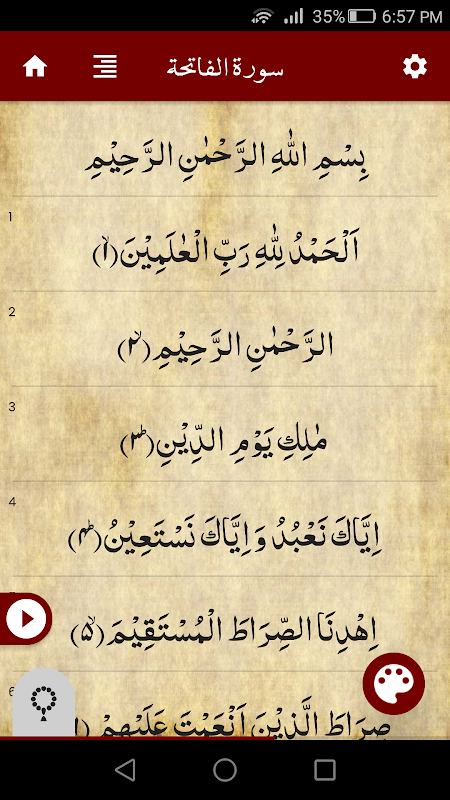 35% 6:57 PM
سورة الفاتحة
بِسْمِ اللّٰهِ الرَّحْمٰنِ الرَّحِيْمِ
1
اَلْحَمْدُ لِلّٰهِ رَبِّ الْعٰلَمِيْنَۙ(۱)
2
الرَّحْمٰنِ الرَّحِيْمِۙ(۲)
3
مٰلِكِ يَوْمِ الدِّيْنِؕ(۳)
4
اِيَّاكَ نَعْبُدُ وَ اِيَّاكَ نَسْتَعِيْنُؕ(۴)
اِهْدِنَا الصِّرَاطَ الْمُسْتَقِيْمَۙ(۵)
6
صِرَاطَ الَّذِيْنَ اَنْعَمْتَ عَلَيْهِمْ